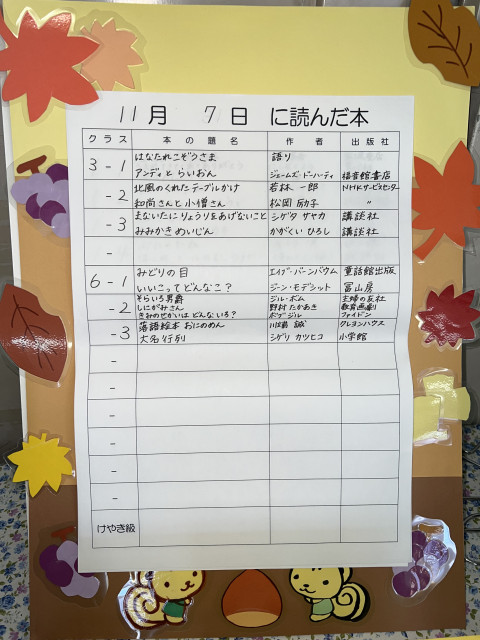 11月 7日 に読んだ本
クラス 本の題名 作者 出版社
3-1 はなたれこぞうさま 語り
アンディとらいおん ジェームズ・ドーハーティ 福音館書店
-2 北風のくれたテーブルかけ 若林一郎 NHKサービスセンター
和尚さんと小僧さん 松岡励子 〃
-3 まないたにりょうりをあげないこと シゲタサヤカ 講談社
みみかきめいじん かがくいひろし 講談社
-
6-1 みどりの目 エイブ・バーンバウム 童話館出版
いいこってどんなこ? ジーン・モデシット 冨山房
-2 そらいろ男爵 ジル・ボム 主婦の友社
しにがみさん 野村たかあき 教育画劇
きみのせかいはどんないろ? ボブ・ジル ファイドン
-3 落語絵本 おにのめん 川端誠 クレヨンハウス
大名行列 シゲリカツヒコ 小学館
-
-
-
-
-
-
けやき級